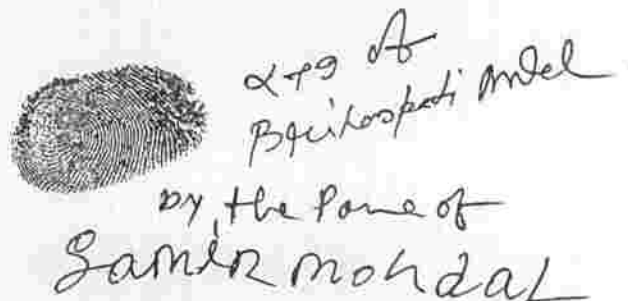 LTG of
Brihospati Mondal
by the Pane of
Samir mondal